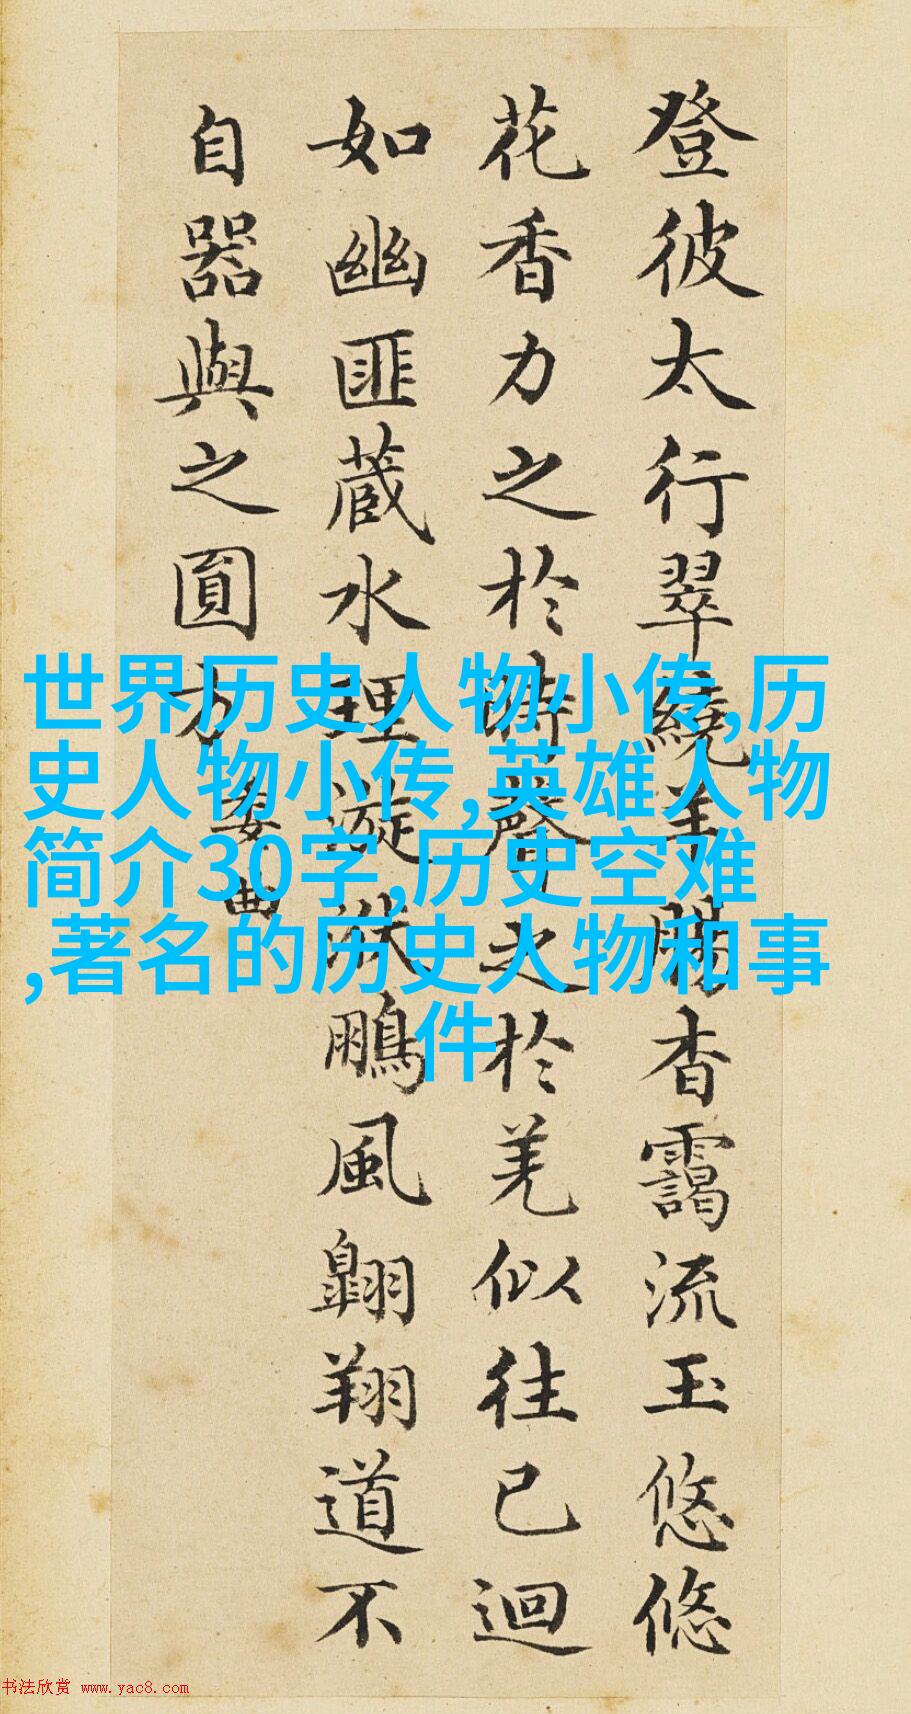 登彼太行翠繞羊腸杳靄流玉悠悠
花香力之於時聲之於羌似往已迴
如幽匪蔵水理漩洑鵬風翺翔道不
自器與之圓方
委曲
世界历史人物小传,历
史人物小传,英雄人物
简介30字,历史空难
,著名的历史人物和事
件
书法欣赏 www.yac8.com